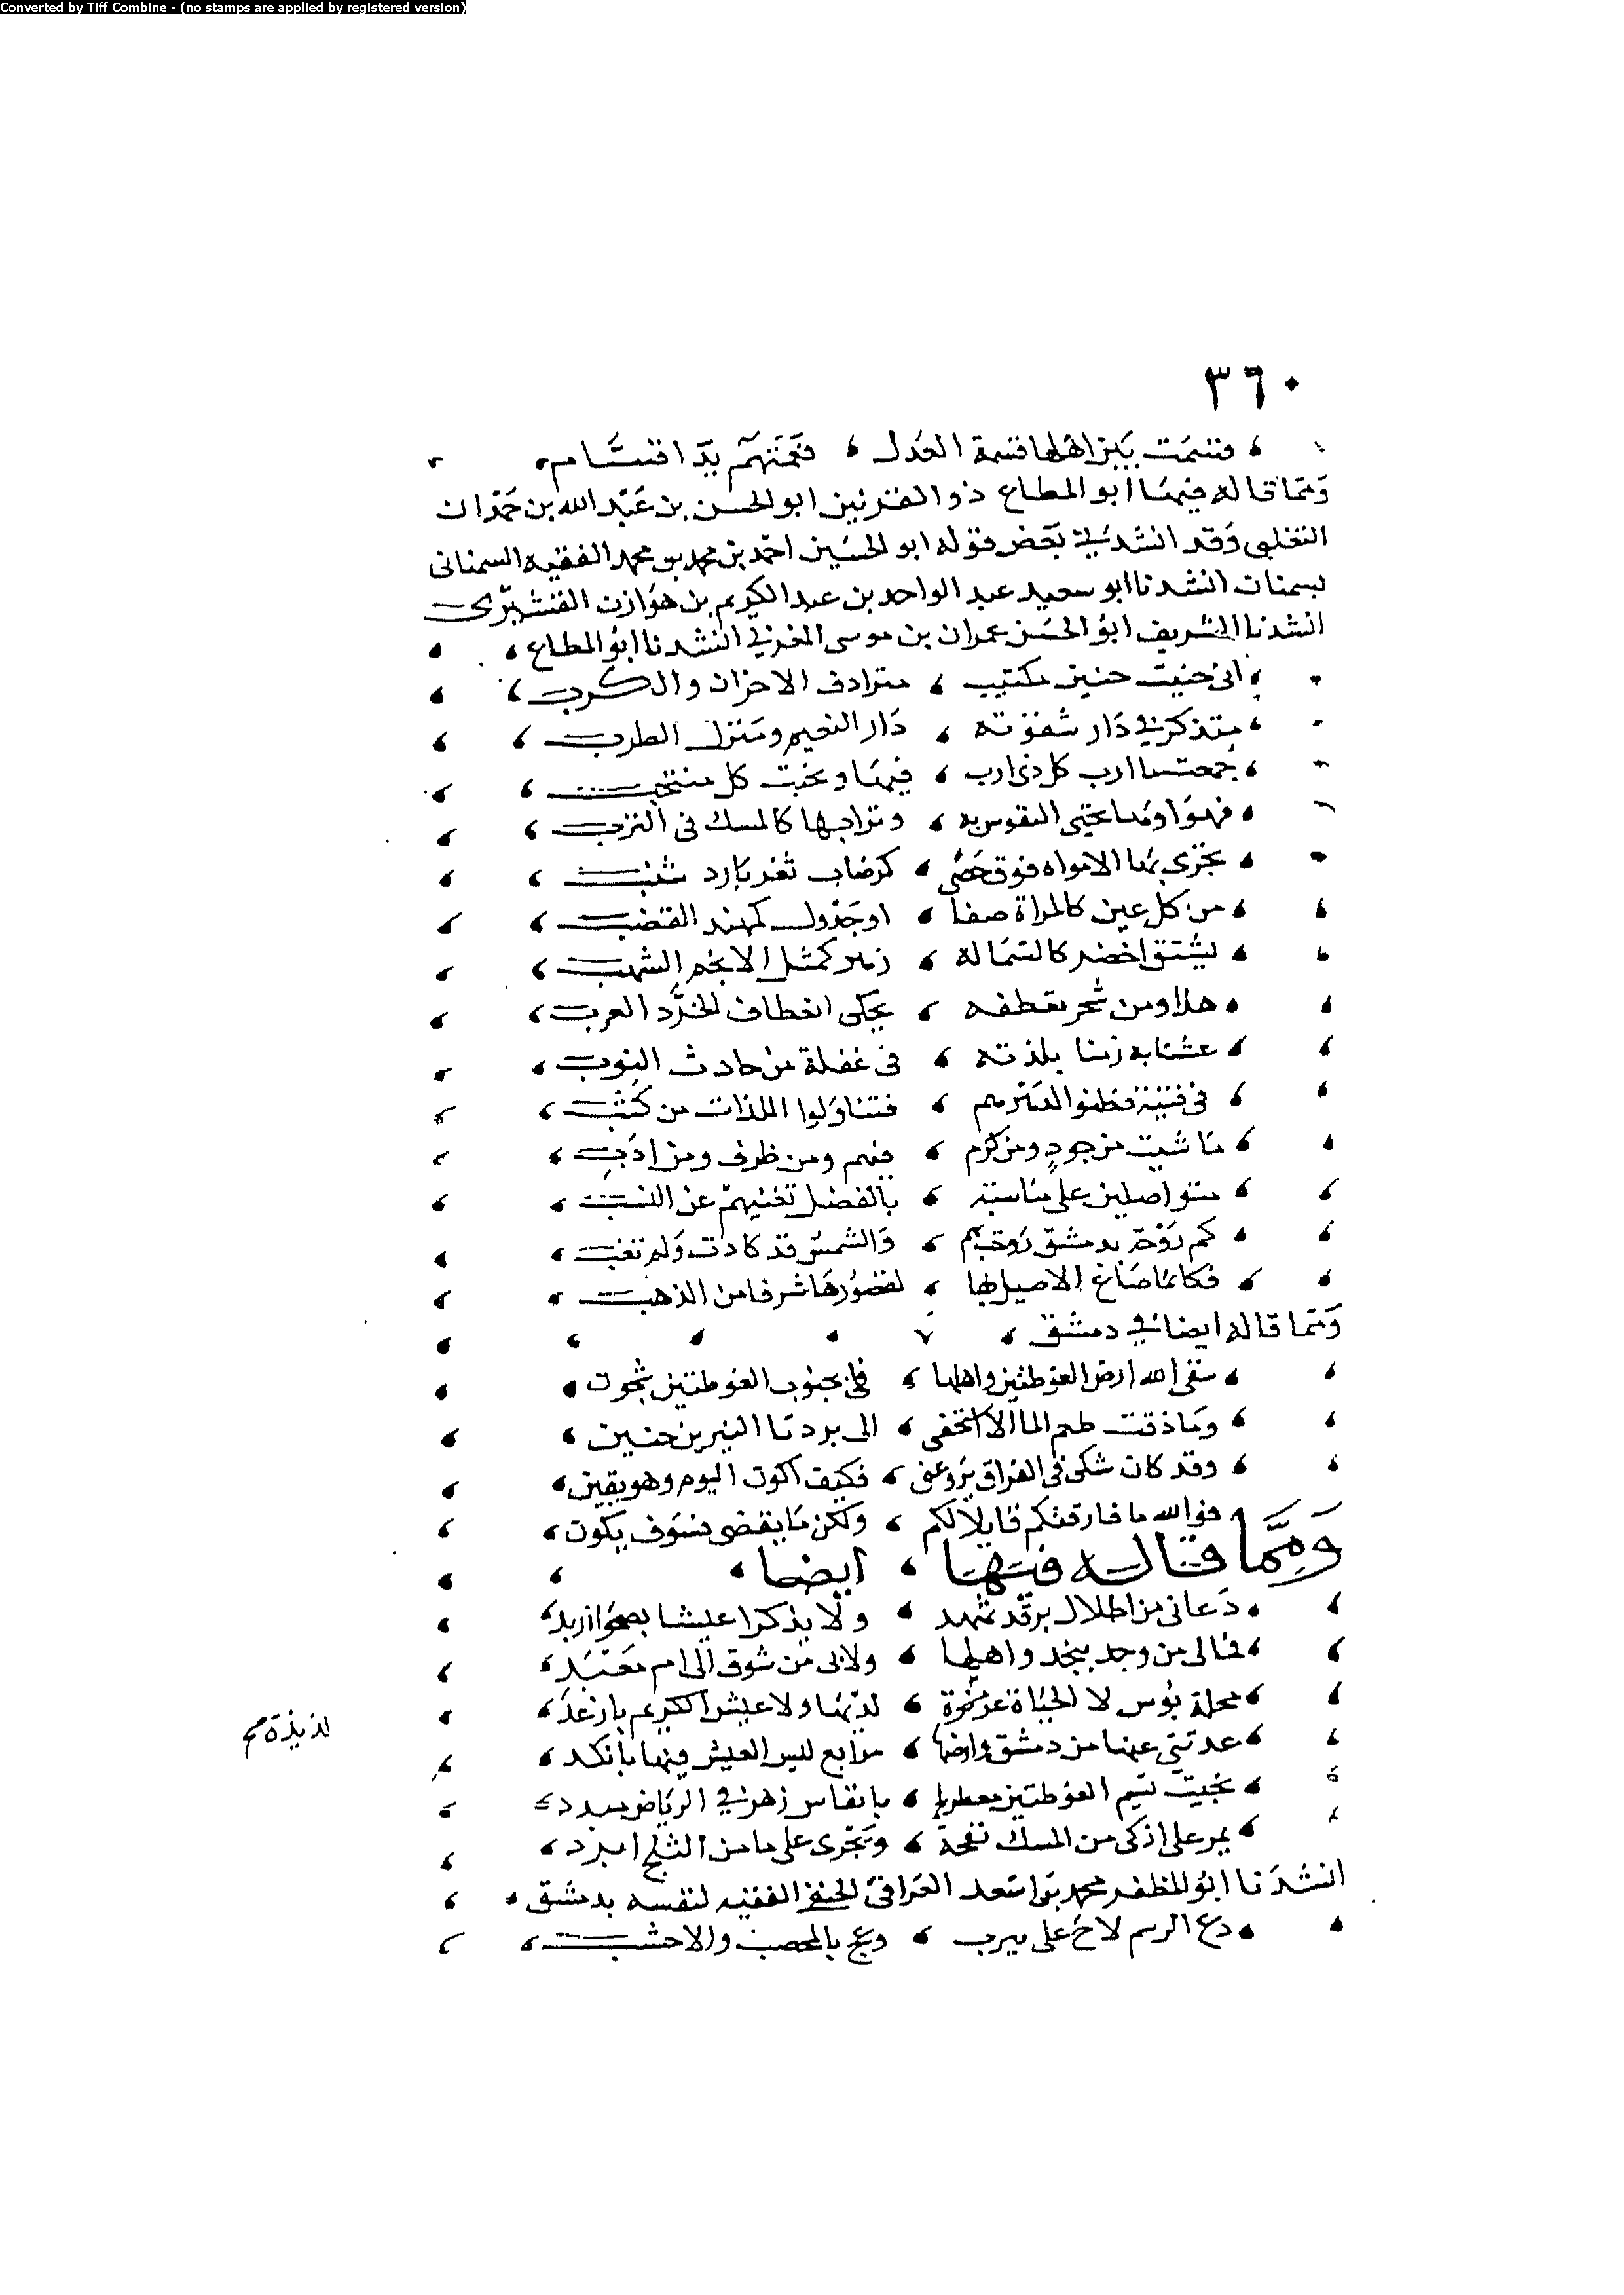 Converted by Tiff Combine - (no stamps are applied by registered version)
٣٦٠
قسمت بين اهلها قسمة العدل ، فعمتهم يد اقتسام
ومما قاله فيها ابو المطاع ذو القرنين ابو الحسن بن عبد الله بن حمدان
التغلبي وقد انشدني بعض قوله ابو الحسين احمد بن محمد بن محمد الفقيه السمناني
بسمنان انشدنا ابو سعيد عبد الواحد بن عبد الكريم بن هوازن القشيري
انشدنا الشريف ابو الحسن عمران بن موسى المغربي انشدنا ابو المطاع
اني حنيت حنين مكتيب ، مترادف الاحزان والكرب
متذكر في دار شقوته ، دار النعيم ومنزل الطرب
جمعت ما ارب كل ذي ارب ، فيها ونخبت كل منتخب
فهواوها تحيى النفوس به ، وترابها كالمسك في الترب
تجري بها الامواه فوق حصى ، كرضاب ثغر بارد شنب
من كل عين كالمراة صفا ، او جدول كمهند القضب
يشتق اخضر كالسما له ، زهر كمثل الانجم الشهب
هذا ومن شجر تعطفه ، يحكى انعطاف الخرد العرب
عشنا به زمنا بلذته ، في غفلة من حادث النوب
في فتية فطنوا لدهرهم ، فتناولوا اللذات من كثب
ما شيت من جود ومن كرم ، فيهم ومن ظرف ومن ادب
متواصلين على مناسبة ، بالفضل تغنيهم عن النسب
كم روحة بدمشق رحت بهم ، والشمس قد كادت ولم تغب
فكانما صاغ الاصيل لها ، لقصورها شرفا من الذهب
ومما قاله ايضا في دمشق
سقى الله ارض الغوطتين واهلها ، فلي بجنوب الغوطتين شجون
وما ذقت طعم الما الا استخفني ، الى بردنا النيربين حنين
وقد كان شكي في الفراق يروعني ، فكيف اكون اليوم وهو يقين
فوالله ما فارقتكم قاليا لكم ، ولكن ما يقضى فسوف يكون
ومما قاله فيها ، ايضا
دعاني من اطلال برقة ثهمد ، ولا يذكرا عيشا بصحرا اربد
فمالي من وجد بنجد واهلها ، ولا بي من شوق الى ام معبد
محلة بؤس لا الحياة عزيزة ، لديها ولا عيش الكريم بارغد
لذيذة صح
عدتني عنها من دمشق وارضها ، مرابع ليس العيش فيها بانكد
بحيث نسيم الغوطتين معطرا ، بانفاس زهر في الرياض مبدد
يمر على اذكى من المسك نفحة ، ويجرى على ما من الثلج ابرد
انشدنا ابو المظفر محمد بن اسعد العراقي الحنفي الفقيه لنفسه بدمشق
دع الرسم لاح على يبرب ، وعج بالمحصب والاحشب